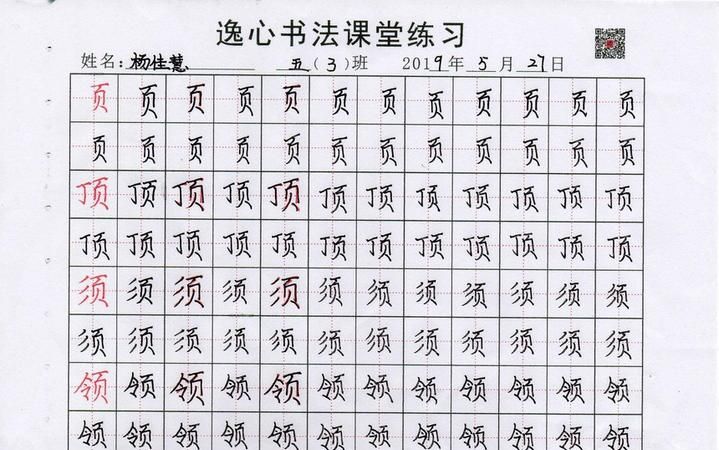 逸心书法课堂练习
姓名:杨佳慧 五(3)班 2019年5月27日
页页页页页页页页页页页页
页页页页页页页页页页页页
顶顶顶顶顶顶顶顶顶顶顶顶
顶顶顶顶顶顶顶顶顶顶顶顶
须须须须须须须须须须须须
须须须须须须须须须须须须
领领领领领领领领领领领领
领领领领领领领领领领领领